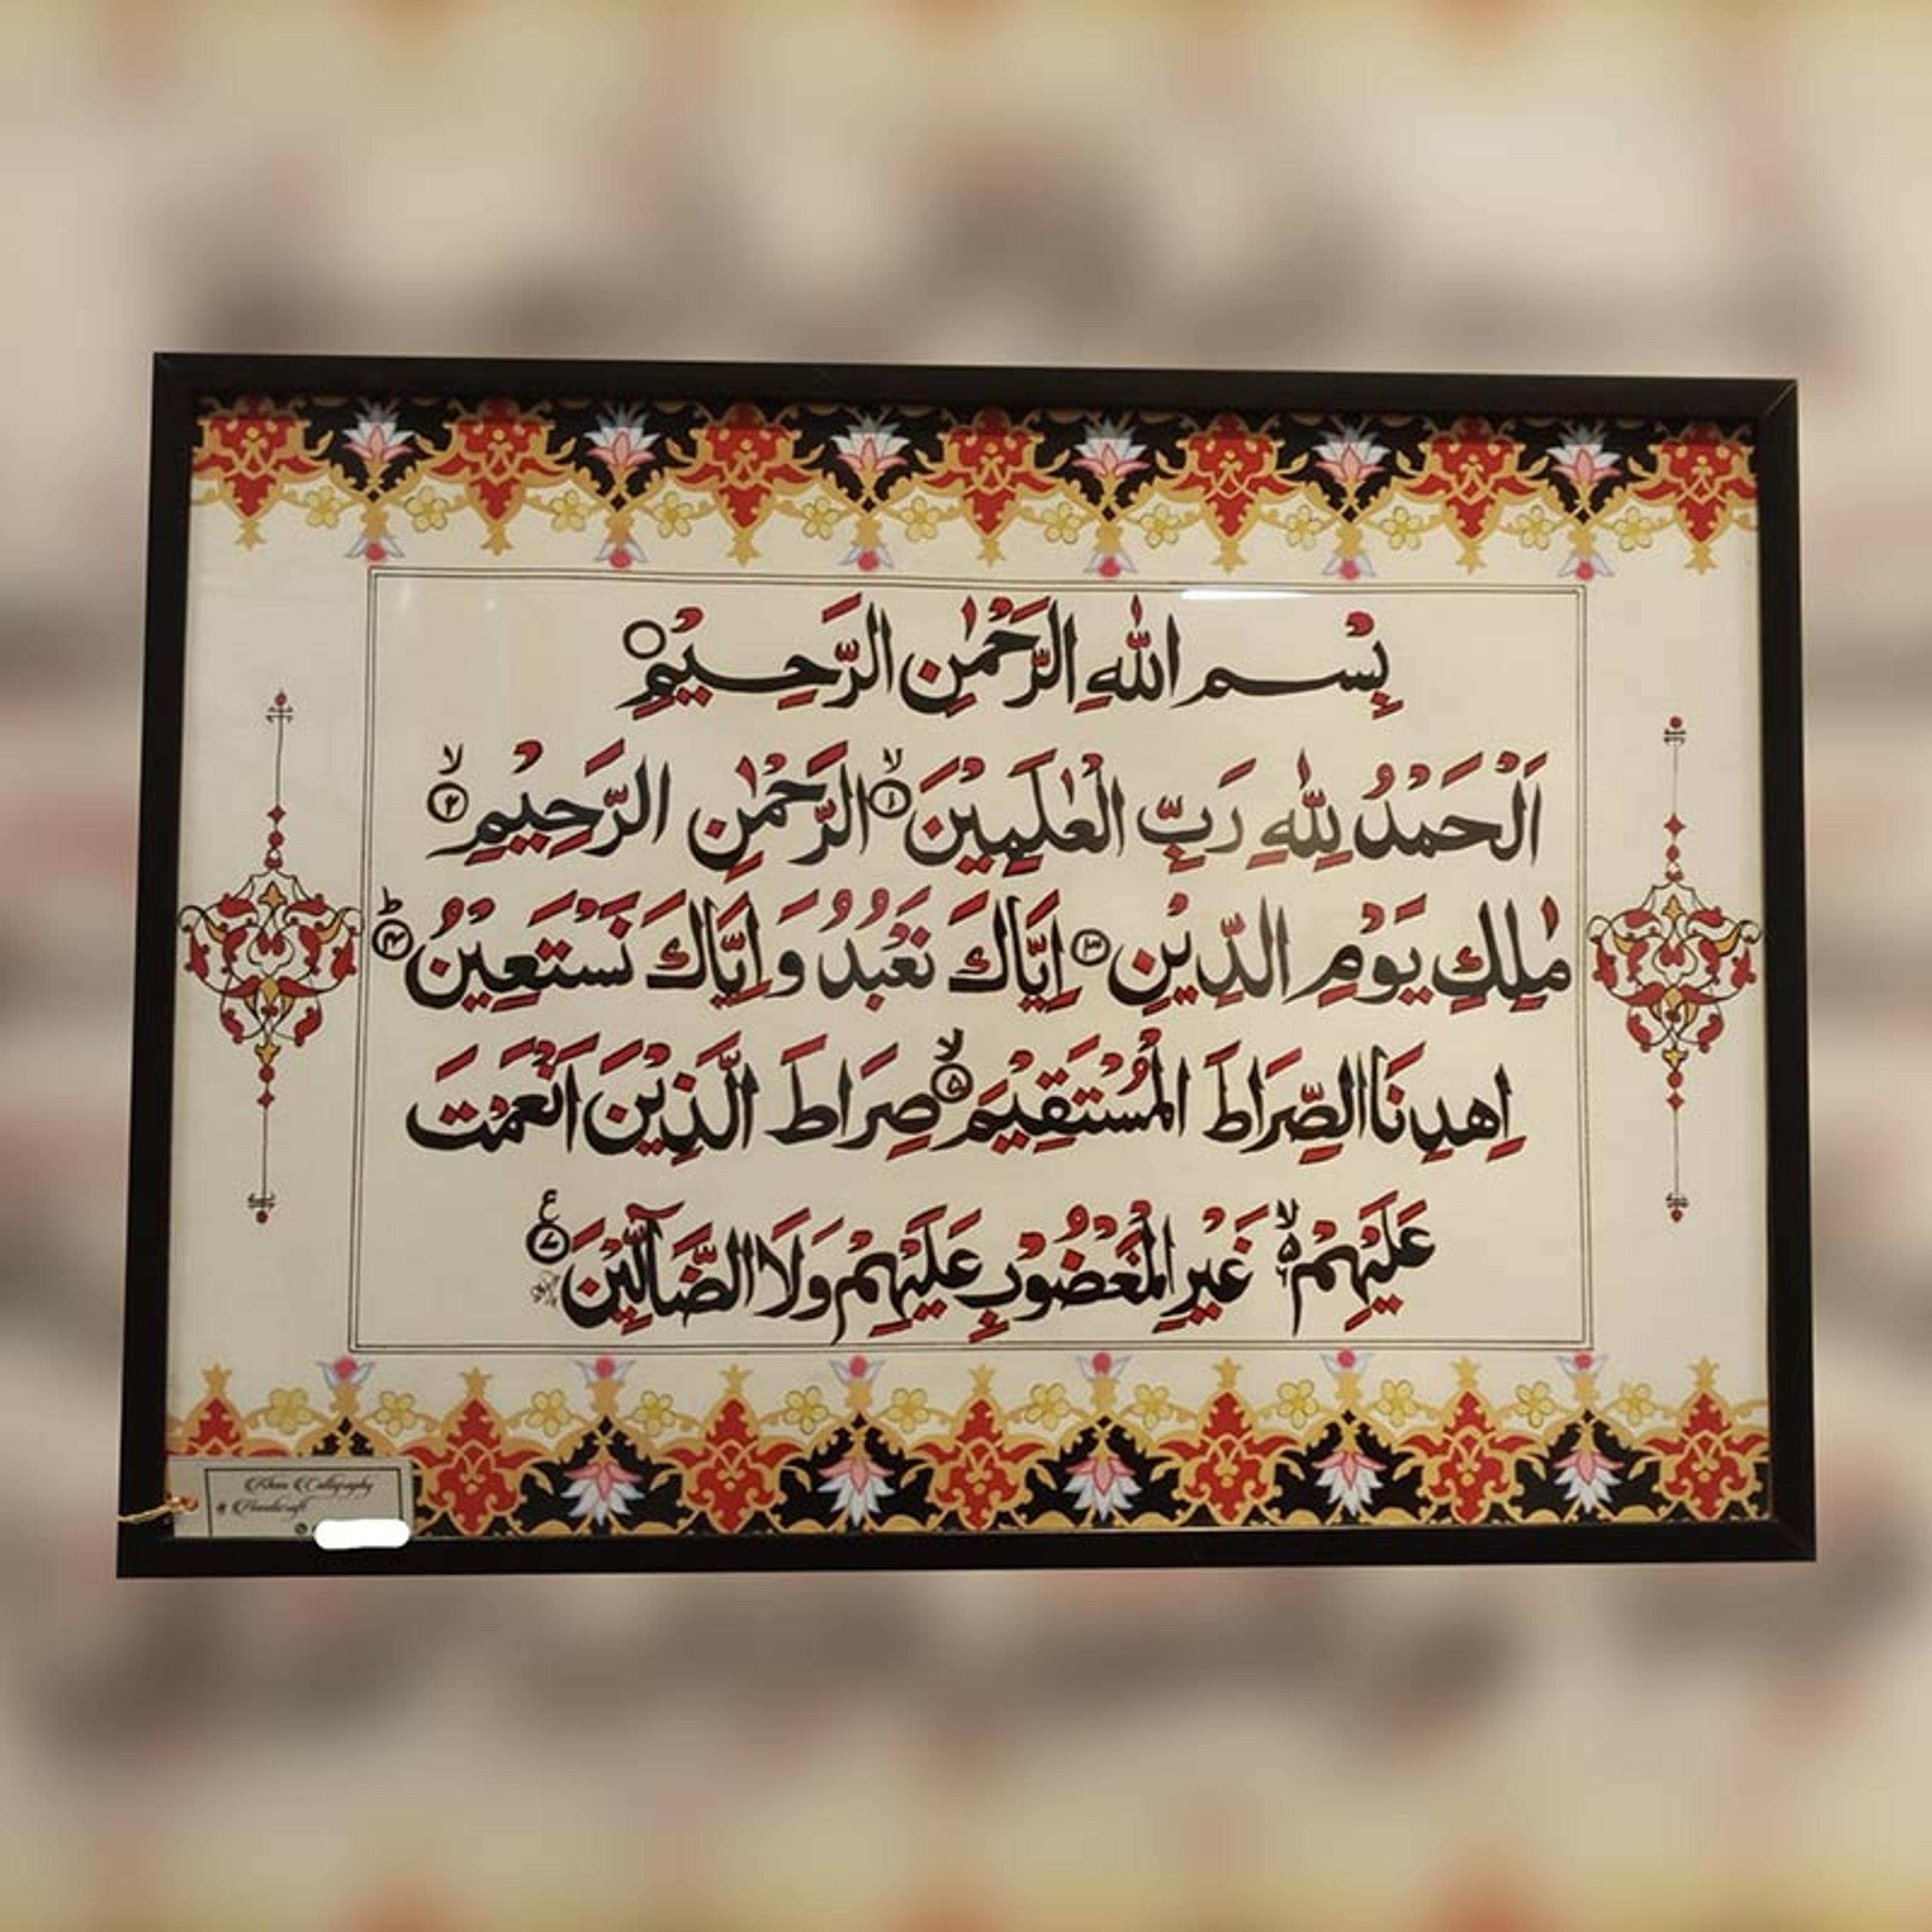 بِسْمِ اللهِ الرَّحْمٰنِ الرَّحِيْمِ ○
اَلْحَمْدُ لِلّٰهِ رَبِّ الْعٰلَمِيْنَ ۙ﴿۱﴾ الرَّحْمٰنِ الرَّحِيْمِ ۙ﴿۲﴾
مٰلِكِ يَوْمِ الدِّيْنِ ﴿۳﴾ اِيَّاكَ نَعْبُدُ وَ اِيَّاكَ نَسْتَعِيْنُ ؕ﴿۴﴾
اِهْدِنَا الصِّرَاطَ الْمُسْتَقِيْمَ ۙ﴿۵﴾ صِرَاطَ الَّذِيْنَ اَنْعَمْتَ
عَلَيْهِمْ ۙ۬ غَيْرِ الْمَغْضُوْبِ عَلَيْهِمْ وَلَا الضَّآلِّيْنَ ﴿۷﴾ ع
Khan Calligraphy
& Handicraft